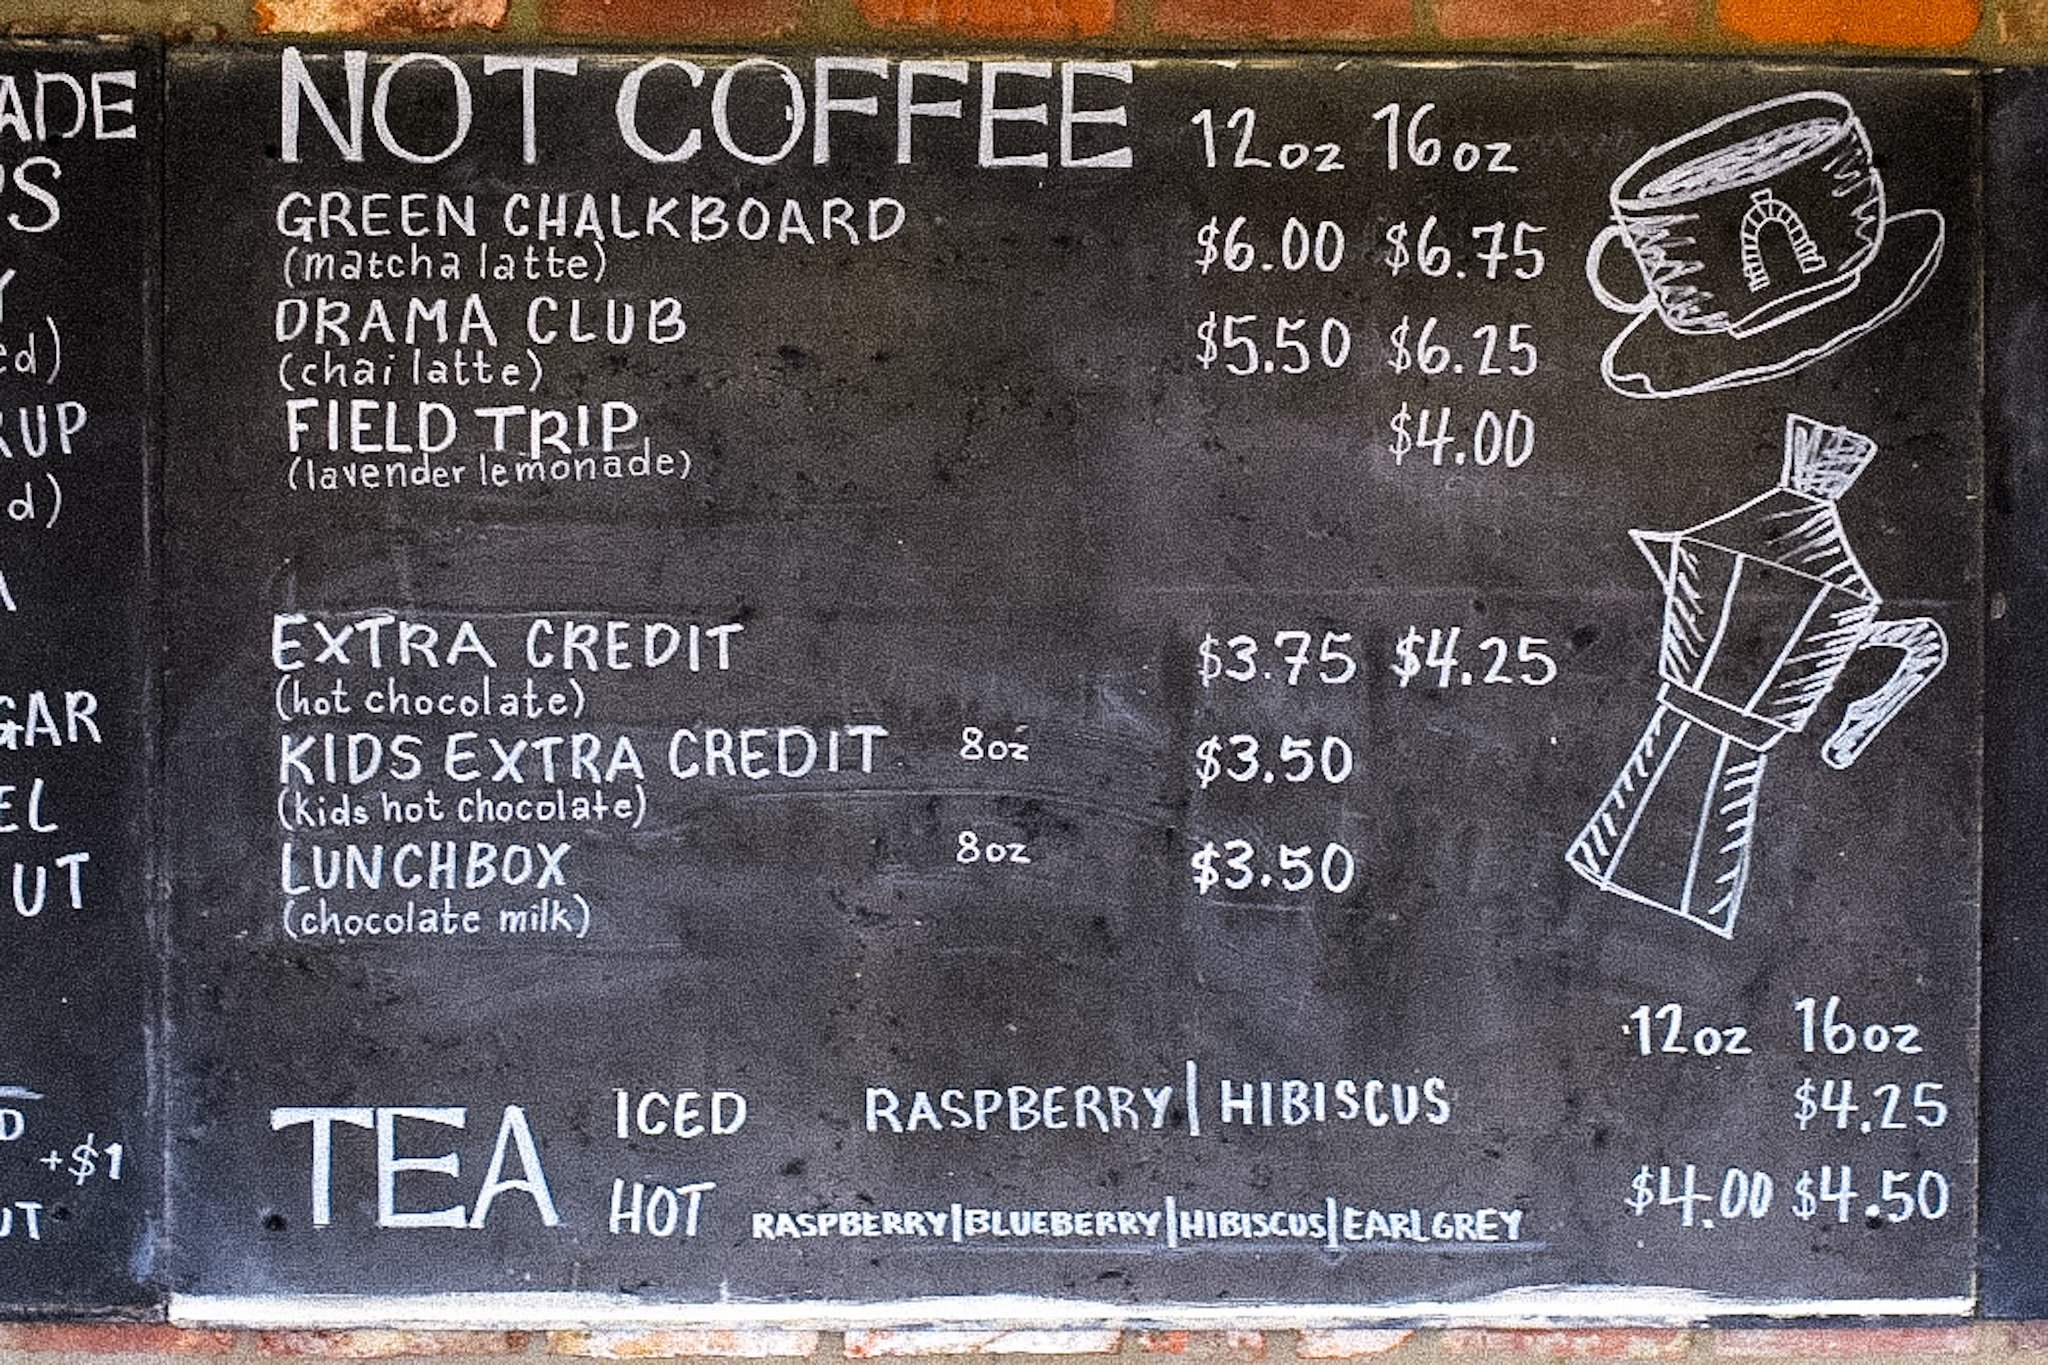 ADE
PS
Y
ed)
RUP
d)
A
GAR
EL
UT
D
+$1
UT
NOT COFFEE 12oz 16oz
GREEN CHALKBOARD $6.00 $6.75
(matcha latte)
DRAMA CLUB $5.50 $6.25
(chai latte)
FIELD TRIP $4.00
(lavender lemonade)
EXTRA CREDIT $3.75 $4.25
(hot chocolate)
KIDS EXTRA CREDIT 8oz $3.50
(kids hot chocolate)
LUNCHBOX 8oz $3.50
(chocolate milk)
12oz 16oz
TEA ICED RASPBERRY|HIBISCUS $4.25
HOT RASPBERRY|BLUEBERRY|HIBISCUS|EARL GREY $4.00 $4.50